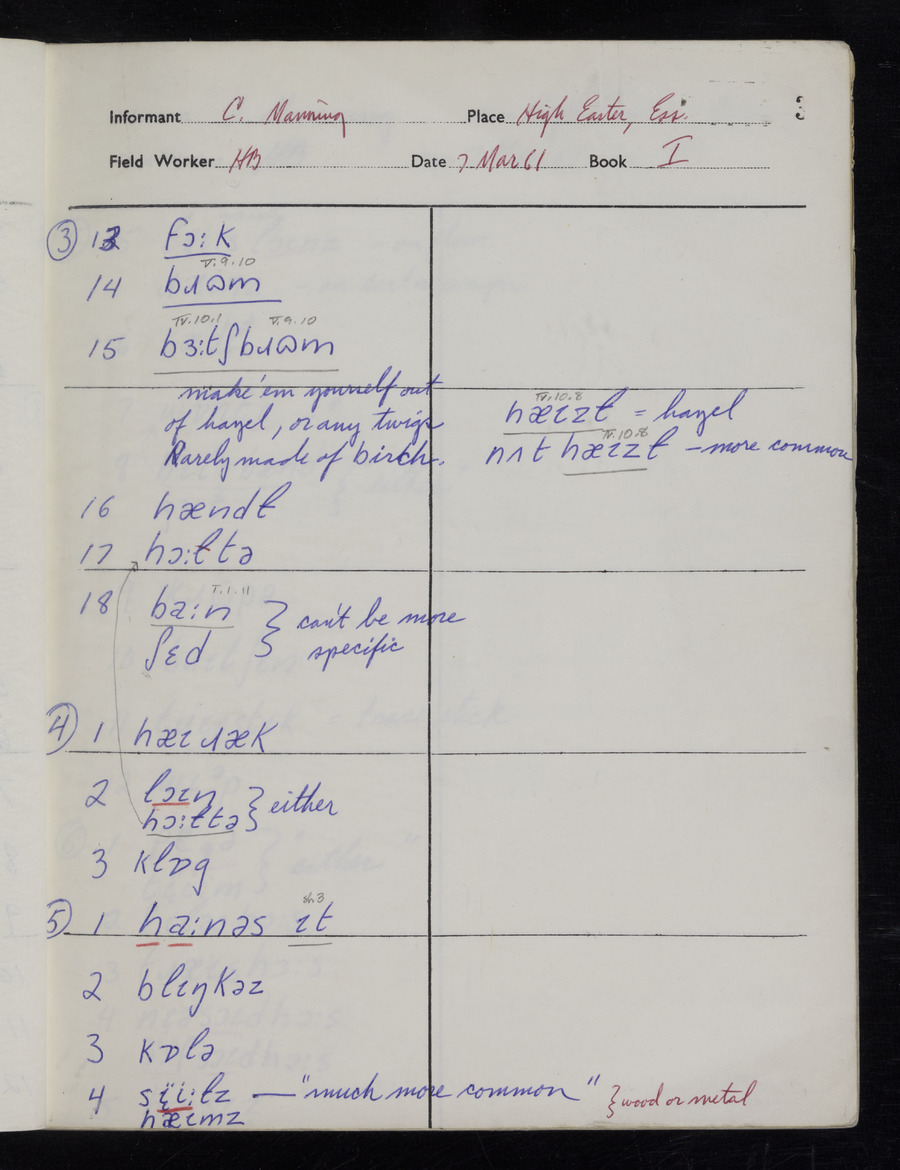 Informant C. Manning Place High Easter, Ess. 3
Field Worker HB Date 7 Mar 61 Book I
③ 13 fɔ:k
V.9.10
14 bɹʊm
IV.10.1 V.9.10
15 bɜ:tʃbɹʊm
make 'em yourself out
of hazel, or any twigs
Rarely made of birch.
IV.10.8
hæɪzɫ = hazel
IV.10.8
nʌt hæɪzɫ – more common
16 hændɫ
17 hɔ:ɫtə
V.1.11
18 ba:n } can't be more
ʃɛd specific
④ 1 hæɪɹæk
2 lɔɪn } either
hɔ:ɫtə
3 klɒg
sh 3
⑤ 1 ha:nəs ɪt
2 blɪŋkəz
3 kɒlə
4 sɪ̈i:ɫz — "much more common" } wood or metal
hæɪmz